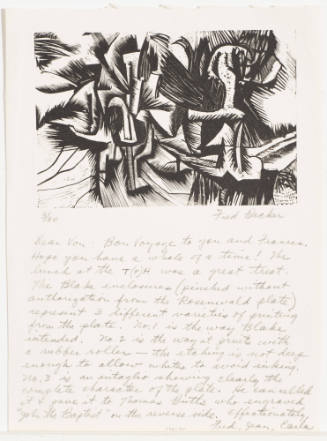 Fred Becker
Dear Von: Bon Voyage to you and Frances.
Hope you have a whale of a time! The
lunch at the T(r)H was a great treat.
The Blake enclosures (pinched without
authorization from the Rosenwald plate)
represent 3 different varieties of printing
from the plate. No. 1 is the way Blake
intended. No 2 is the way it prints with
a rubber roller — the etching is not deep
enough to allow whites to avoid inking.
No. 3 is an intaglio showing clearly the
complete character of the plate. He cancelled
it & gave it to Thomas Butts who engraved
"John the Baptist" on the reverse side. Affectionately,
Fred, Jean, Carla